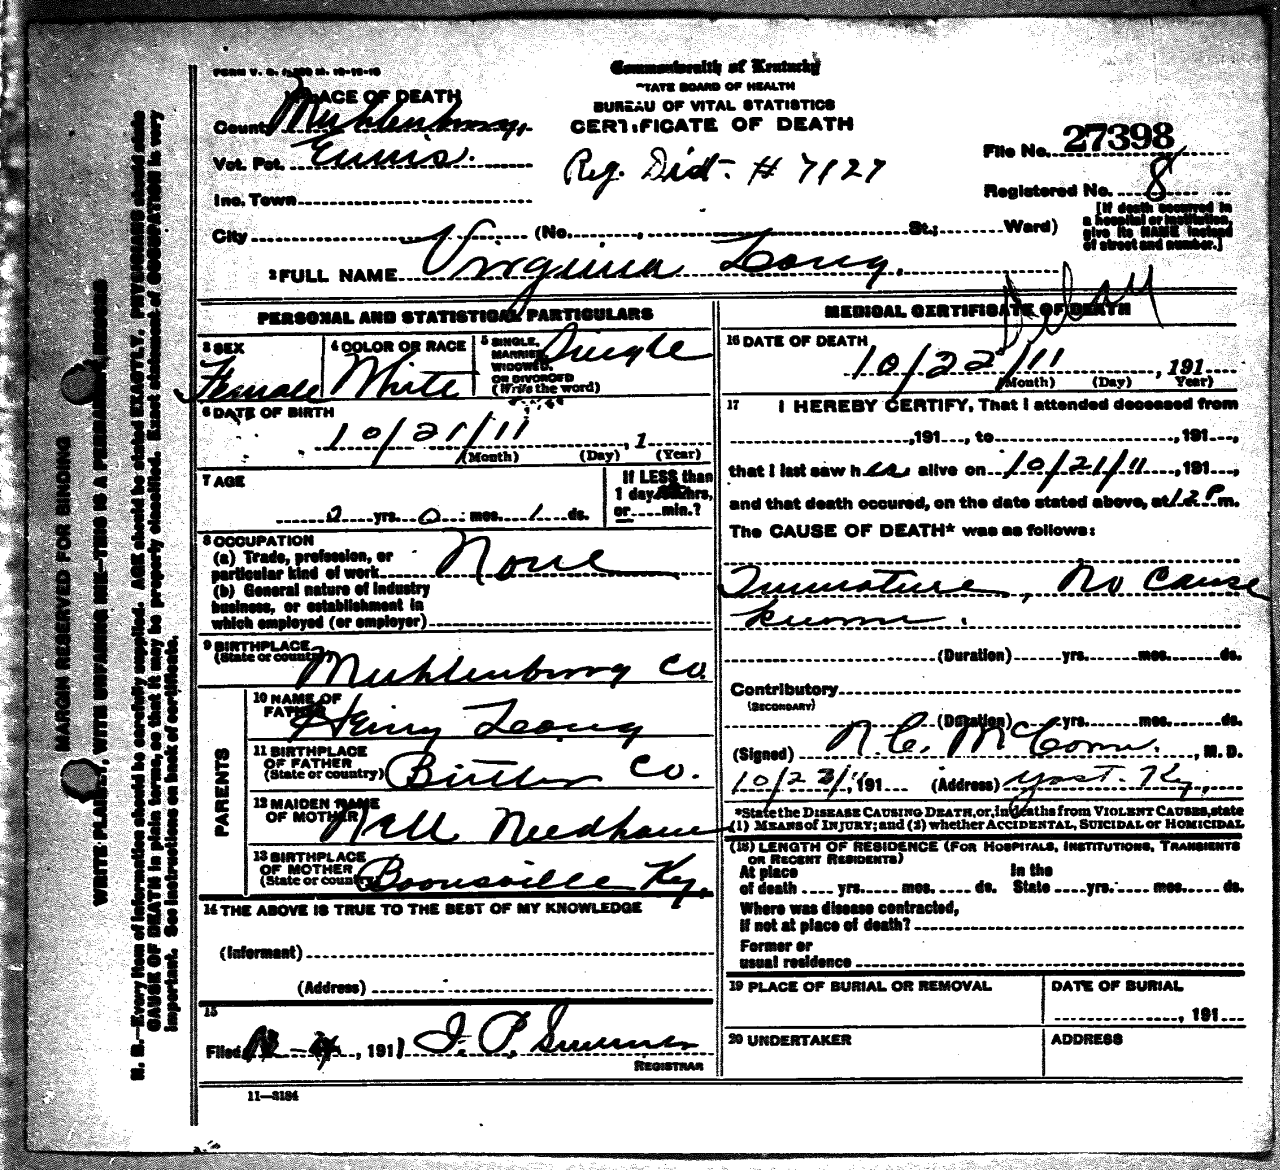 Commonwealth of Kentucky
STATE BOARD OF HEALTH
BUREAU OF VITAL STATISTICS
CERTIFICATE OF DEATH
PLACE OF DEATH
County Muhlenburg.
Vot. Pct. Ennis.
Reg. Dist- # 7127
File No. 27398
Inc. Town
Registered No. 8
City (No. , St.; Ward)
[If death occurred in
a hospital or institution,
give its NAME instead
of street and number.]
2 FULL NAME Virginia Long.
PERSONAL AND STATISTICAL PARTICULARS
3 SEX
Female
4 COLOR OR RACE
White
5 SINGLE,
MARRIED,
WIDOWED,
OR DIVORCED
(Write the word)
Single
6 DATE OF BIRTH
10/21/11 , 1
(Month) (Day) (Year)
7 AGE
0 yrs. 0 mos. 1 ds.
If LESS than
1 day, hrs,
or min.?
8 OCCUPATION
(a) Trade, profession, or
particular kind of work None
(b) General nature of industry
business, or establishment in
which employed (or employer)
9 BIRTHPLACE
(State or country)
Muhlenburg Co.
PARENTS
10 NAME OF
FATHER
Henry Long
11 BIRTHPLACE
OF FATHER
(State or country) Butler Co.
12 MAIDEN NAME
OF MOTHER
Nell Needham
13 BIRTHPLACE
OF MOTHER
(State or country) Boonsville Ky.
14 THE ABOVE IS TRUE TO THE BEST OF MY KNOWLEDGE
(Informant)
(Address)
15
Filed , 1911 REGISTRAR
11—3184
MEDICAL CERTIFICATE OF DEATH
16 DATE OF DEATH
10/22/11 , 191
(Month) (Day) Year)
17 I HEREBY CERTIFY, That I attended deceased from
,191 , to ,191 ,
that I last saw h er alive on 10/21/11 , 191 ,
and that death occured, on the date stated above, at 12 P m.
The CAUSE OF DEATH* was as follows:
Immature, No Cause
known.
(Duration) yrs. mos. ds.
Contributory
(SECONDARY)
(Duration) yrs. mos. ds.
(Signed) , M. D.
10/23/11, 191 (Address) Yost. Ky.
*State the DISEASE CAUSING DEATH, or, in deaths from VIOLENT CAUSES, state
(1) MEANS of INJURY; and (2) whether ACCIDENTAL, SUICIDAL or HOMICIDAL
(18) LENGTH OF RESIDENCE (FOR HOSPITALS, INSTITUTIONS, TRANSIENTS
OR RECENT RESIDENTS)
At place In the
of death yrs. mos. ds. State yrs. mos. ds.
Where was disease contracted,
if not at place of death?
Former or
usual residence
19 PLACE OF BURIAL OR REMOVAL
DATE OF BURIAL
, 191
20 UNDERTAKER
ADDRESS
MARGIN RESERVED FOR BINDING
WRITE PLAINLY, WITH UNFADING INK—THIS IS A PERMANENT RECORD
N. B.—Every item of information should be carefully supplied. AGE should be stated EXACTLY. PHYSICIANS should state
CAUSE OF DEATH in plain terms, so that it may be properly classified. Exact statement of OCCUPATION is very
important. See instructions on back of certificate.